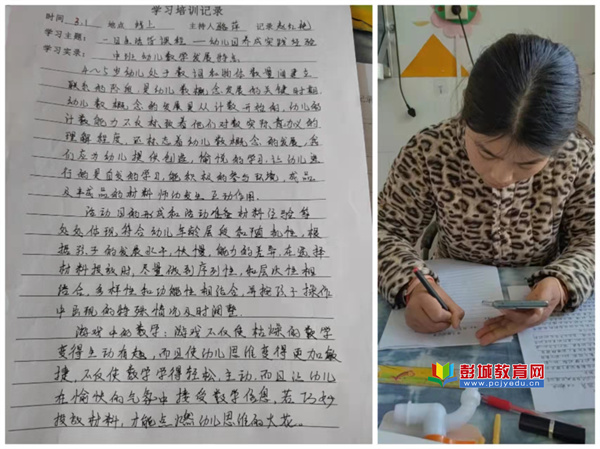 学习培训记录
时间 3.1 地点 线上 主持人 记录
学习主题: 一日生活皆课程 ——幼儿园养成实践经验
学习实录: 中班幼儿数学发展特点
4~5岁幼儿处于数词和物体数量间建立
联系的阶段,是幼儿数概念发展的关键时期
幼儿数概念的发展是从计数开始的,幼儿的
计数能力不仅标志着他们对数实际意义的
理解程度,还标志着幼儿数概念的发展,我
们应为幼儿提供刺激,愉悦的学习,让幼儿进
行的是自发的学习,能积极的参与环境,成品
及半成品的材料师幼发生互动作用。
活动目的形成和活动准备材料经验等
处处体现,符合幼儿年龄层段和随机性,根
据孩子的发展水平,快慢,能力的差异,在选择
材料投放时,尽量做到序列性和层次性相
结合,多样性和功能性相结合,并按孩子操作
中出现的特殊情况及时调整
游戏中的数学:游戏不仅使枯燥的数学
变得生动有趣,而且使幼儿思维变得更加敏
捷,不仅使数学学得轻松,主动,而且让幼儿
在愉快的气氛中接受数学信息,若巧妙
投放材料,才能点燃幼儿思维的火花。
彭城教育网
www.pcjyedu.cn